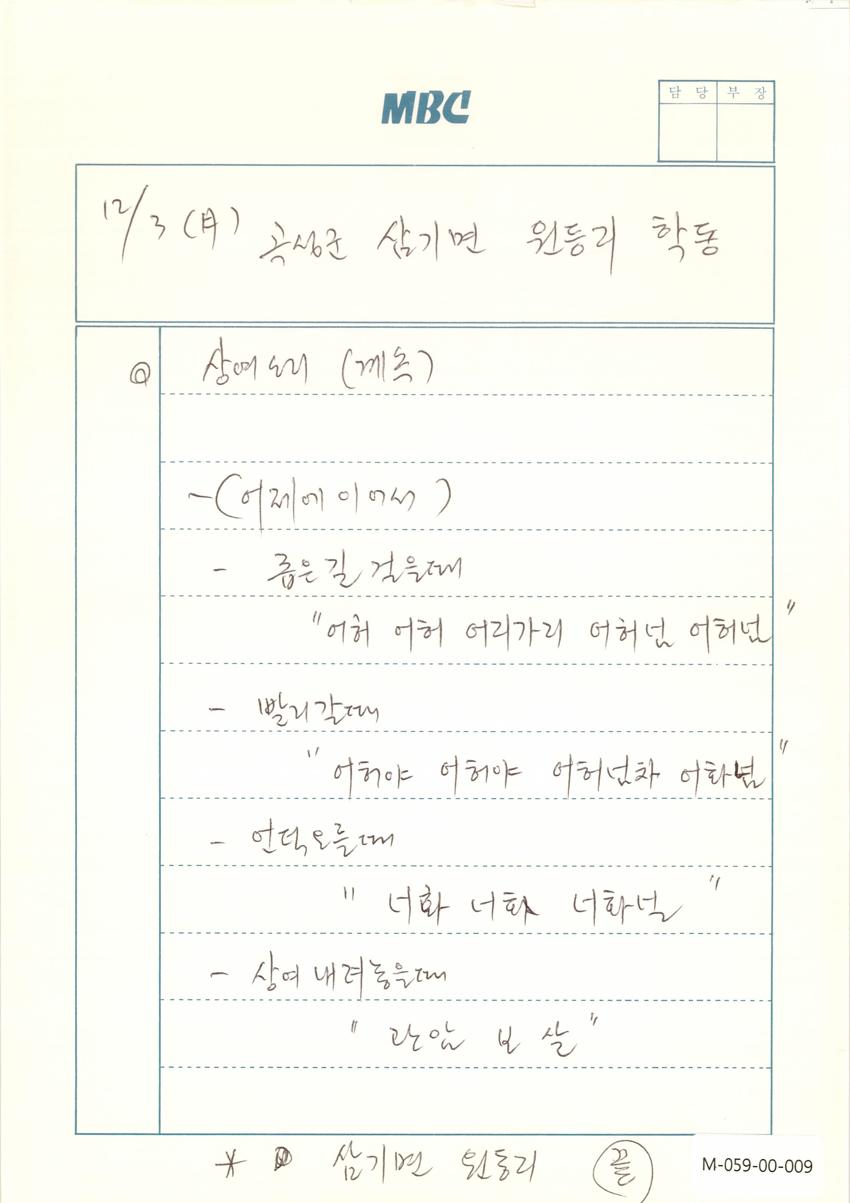 MBC
담 당 부 장
12/3 (月) 곡성군 삼기면 원등리 학동
◎ 상여소리 (계속)
-(어제에 이어서)
- 좁은길 걸을때
"어허 어허 어리가리 어허넘 어허넘"
- 빨리갈때
"어허야 어허야 어허넘차 어화넘"
- 언덕오를때
"너화 너화 너화넘"
- 상여 내려놓을때
"관암 보살"
* 삼기면 원등리 끝
M-059-00-009